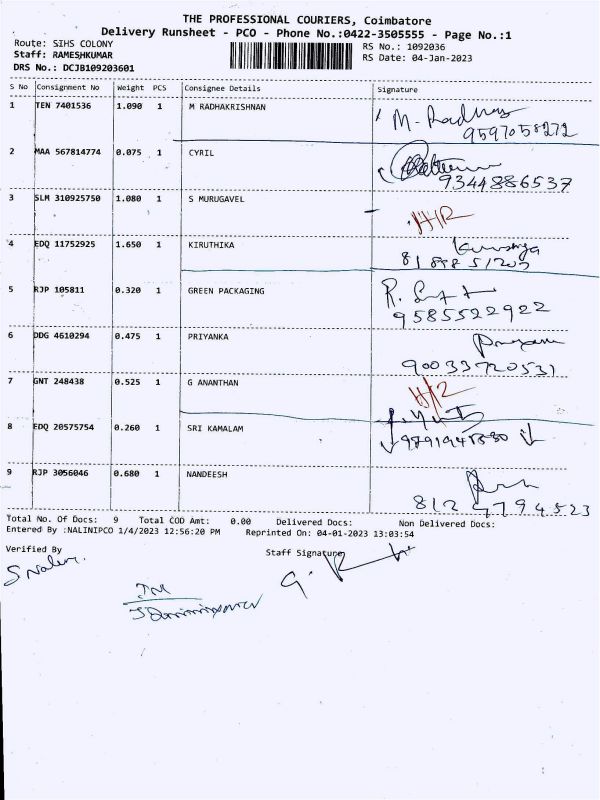 THE PROFESSIONAL COURIERS, Coimbatore
Delivery Runsheet - PCO - Phone No.:0422-3505555 - Page No.:1
Route: SIHS COLONY
RS No.: 1092036
Staff: RAMESHKUMAR
RS Date: 04-Jan-2023
DRS No.: DCJB109203601
S No Consignment No Weight PCS Consignee Details Signature
1 TEN 7401536 1.090 1 M RADHAKRISHNAN M. Radhas
9597058272
2 MAA 567814774 0.075 1 CYRIL
9344886537
3 SLM 310925750 1.080 1 S MURUGAVEL
H/R
4 EDQ 11752925 1.650 1 KIRUTHIKA
5 RJP 105811 0.320 1 GREEN PACKAGING R.
9585522922
6 DDG 4610294 0.475 1 PRIYANKA
90033720531
7 GNT 248438 0.525 1 G ANANTHAN
H/R
8 EDQ 20575754 0.260 1 SRI KAMALAM
9 RJP 3056046 0.680 1 NANDEESH
8124794523
Total No. Of Docs: 9 Total COD Amt: 0.00 Delivered Docs: Non Delivered Docs:
Entered By :NALINIPCO 1/4/2023 12:56:20 PM Reprinted On: 04-01-2023 13:03:54
Verified By Staff Signature
S Nalin.